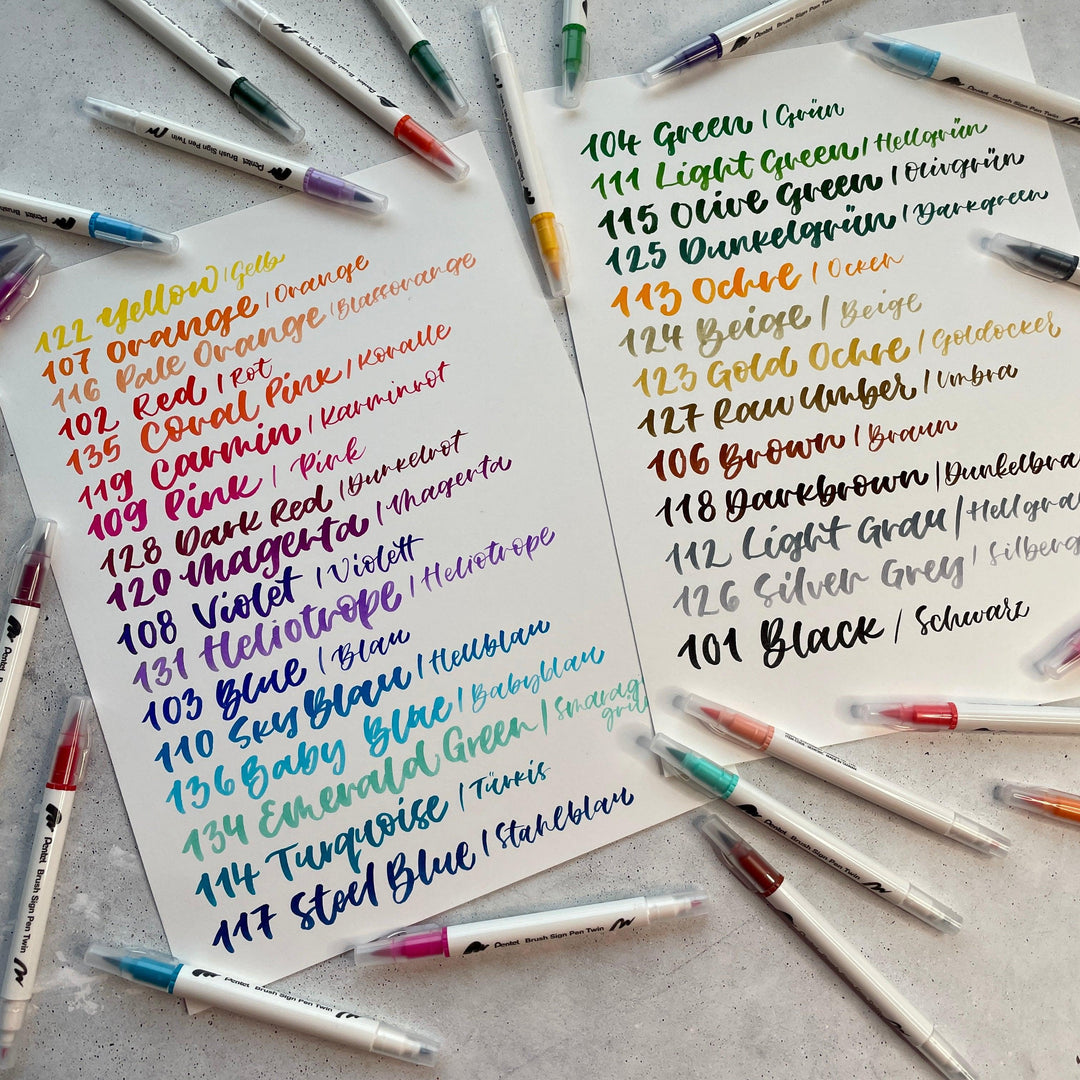 122 Yellow | Gelb
107 Orange | Orange
116 Pale Orange | Blassorange
102 Red | Rot
135 Coral Pink | Koralle
119 Carmin | Karminrot
109 Pink | Pink
128 Dark Red | Dunkelrot
120 Magenta | Magenta
108 Violet | Violett
131 Heliotrope | Heliotrope
103 Blue | Blau
110 Sky Blau | Hellblau
136 Baby Blue | Babyblau
134 Emerald Green | Smaragd
grün
114 Turquoise | Türkis
117 Steel Blue | Stahlblau
104 Green | Grün
111 Light Green | Hellgrün
115 Olive Green | Olivgrün
125 Dunkelgrün | Darkgreen
113 Ochre | Ocker
124 Beige | Beige
123 Gold Ochre | Goldocker
127 Raw Umber | Umbra
106 Brown | Braun
118 Darkbrown | Dunkelbra
112 Light Grau | Hellgra
126 Silver Grey | Silberg
101 Black / Schwarz
Pentel Brush Sign Pen Twin
Pentel Brush Sign Pen Twin
Pentel Brush Sign Pen Twin
Pentel Brush Sign Pen Twin
Pentel Brush Sign Pen Twin
Brush Sign Pen Twin
Pentel